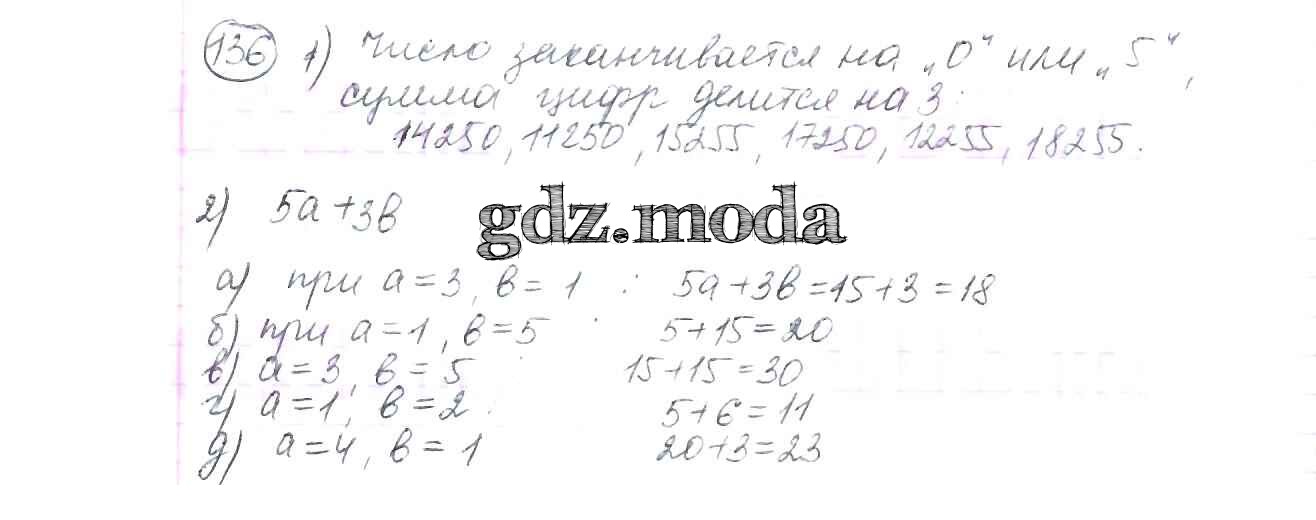 136 1) Число заканчивается на „0" или „5",
сумма цифр делится на 3:
14250, 11250, 15255, 17250, 12255, 18255.
2) 5a+3в
gdz.moda
а) при a=3, в=1 : 5a+3в=15+3=18
б) при a=1, в=5 : 5+15=20
в) a=3, в=5 : 15+15=30
г) a=1, в=2 : 5+6=11
д) a=4, в=1 20+3=23